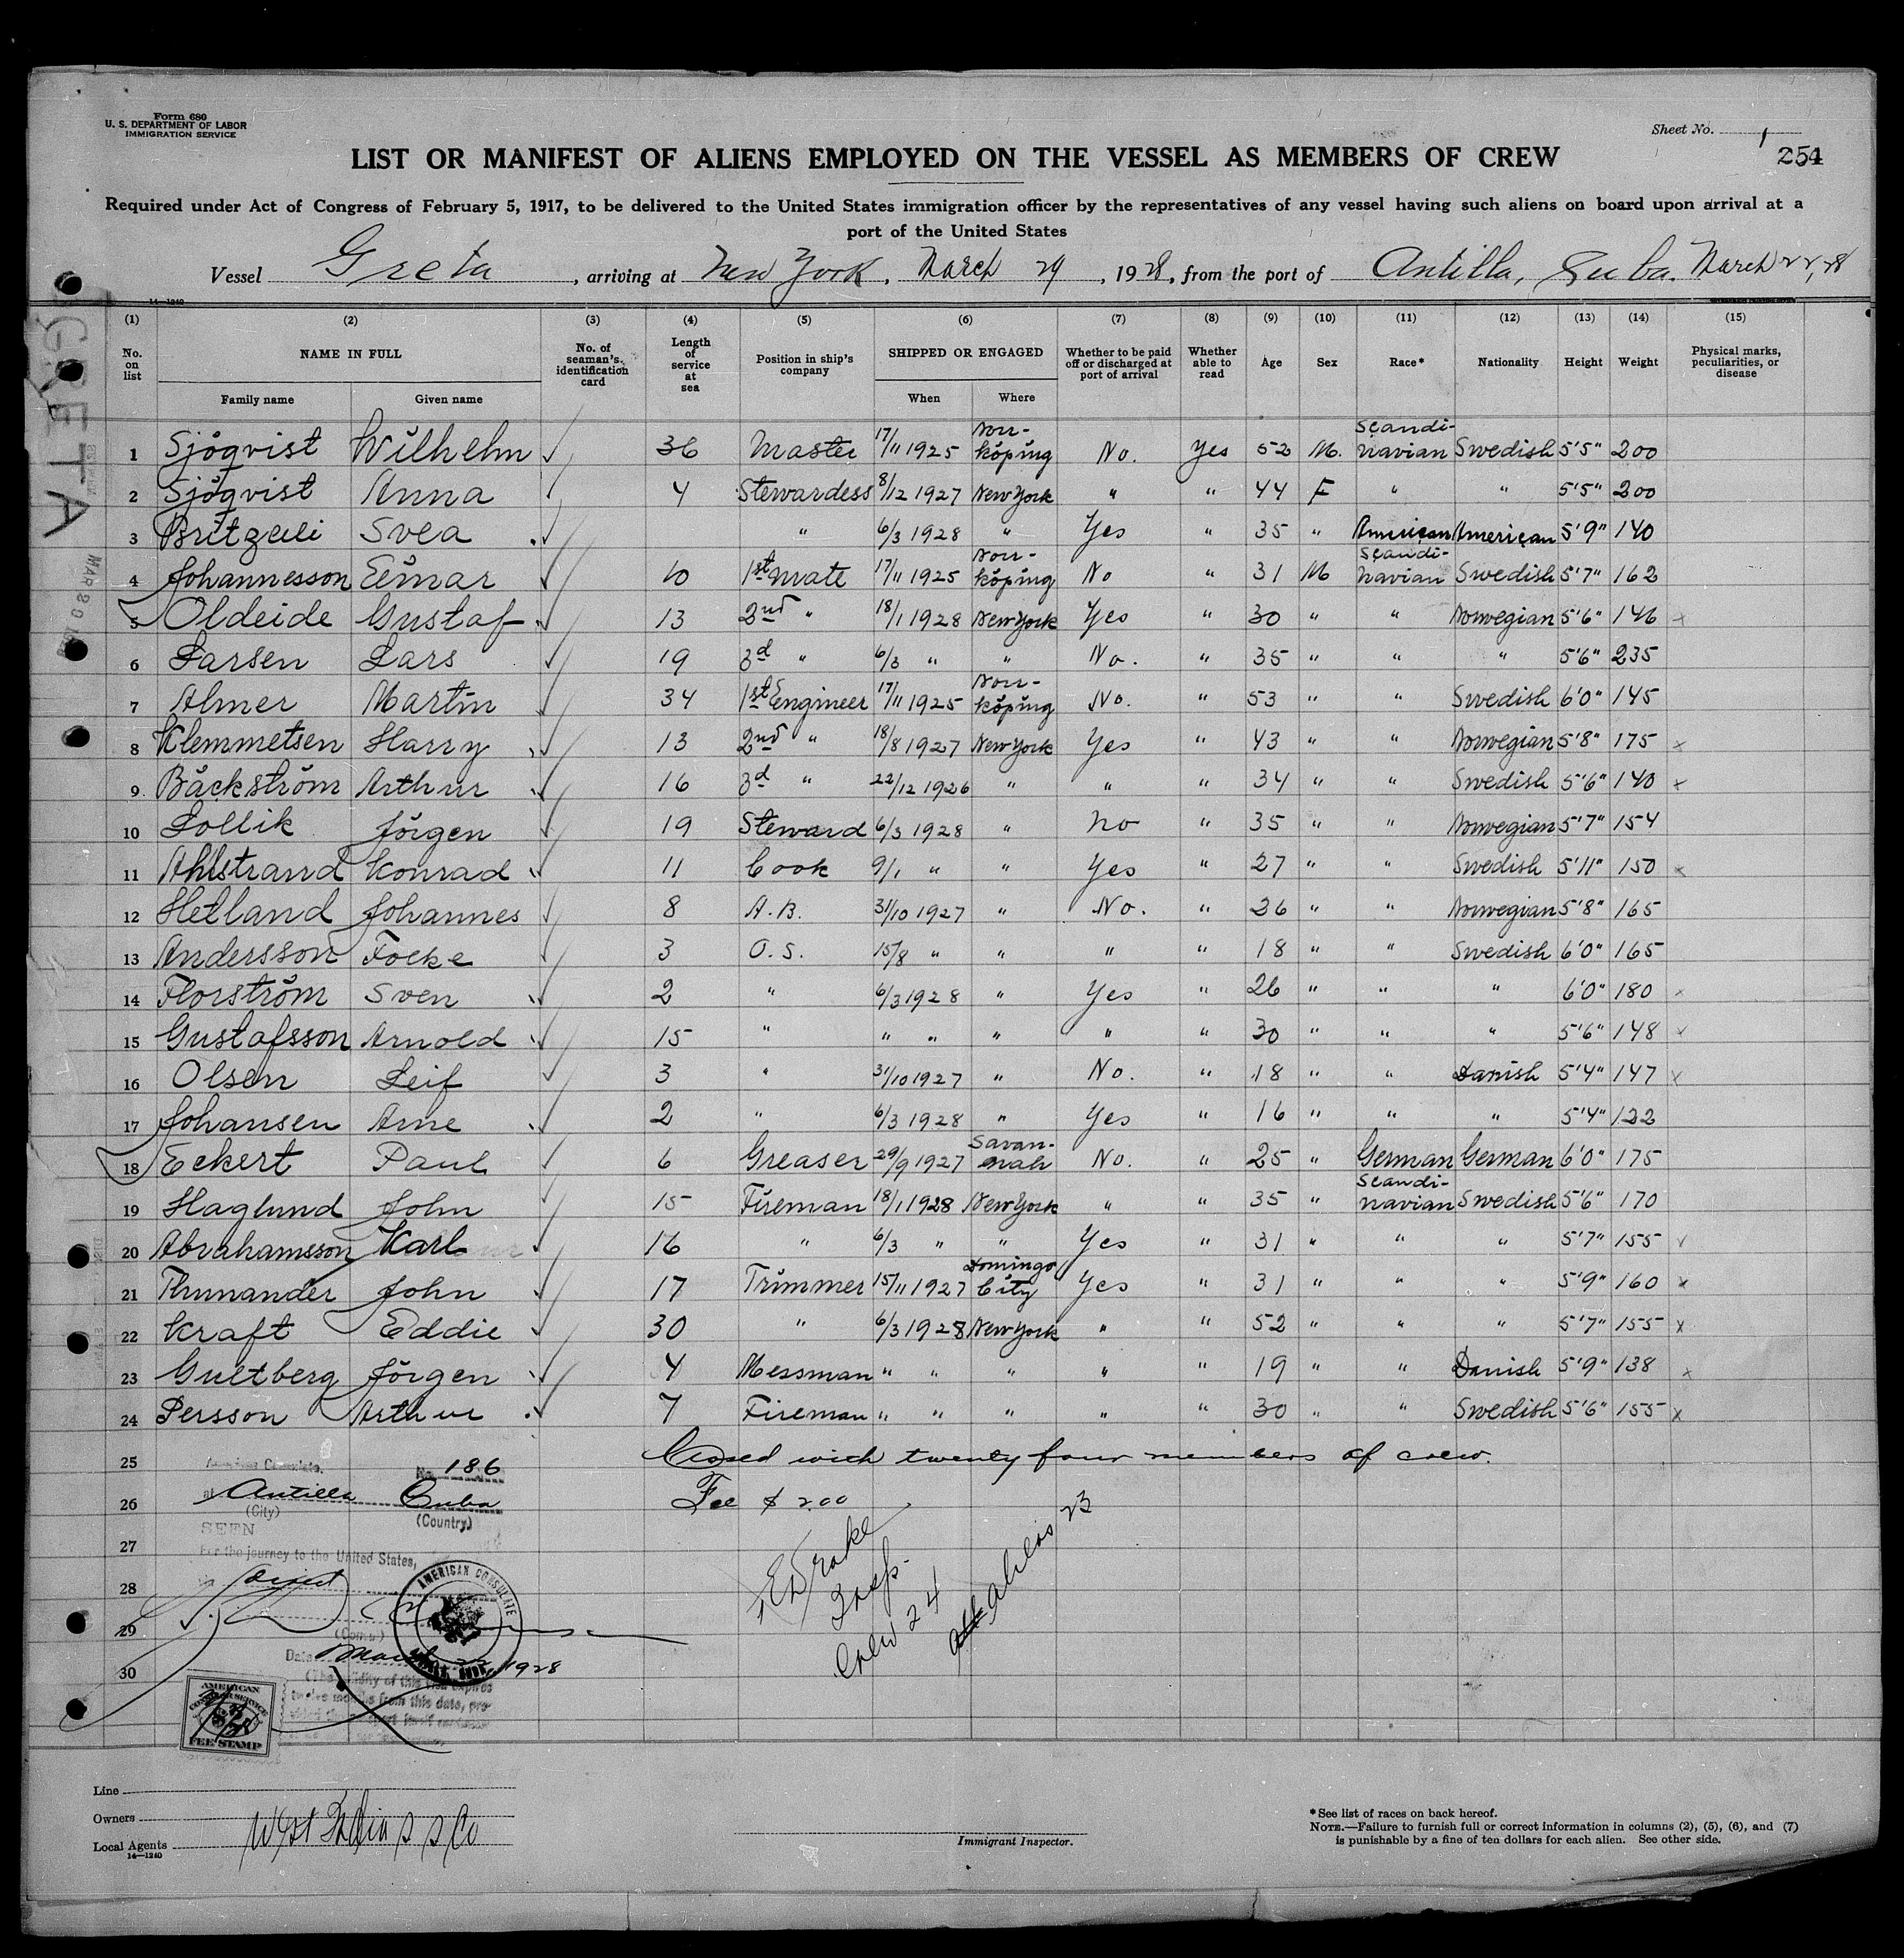 Form 680
U. S. DEPARTMENT OF LABOR
IMMIGRATION SERVICE
Sheet No. 1
254
LIST OR MANIFEST OF ALIENS EMPLOYED ON THE VESSEL AS MEMBERS OF CREW
Required under Act of Congress of February 5, 1917, to be delivered to the United States immigration officer by the representatives of any vessel having such aliens on board upon arrival at a
port of the United States
Vessel Greta, arriving at New York, March 29, 1928, from the port of Antilla, Cuba. March 22, 28
14—1240
GRETA
(1) (2) (3) (4) (5) (6) (7) (8) (9) (10) (11) (12) (13) (14) (15)
No. on list NAME IN FULL No. of seaman's identification card Length of service at sea Position in ship's company SHIPPED OR ENGAGED Whether to be paid off or discharged at port of arrival Whether able to read Age Sex Race* Nationality Height Weight Physical marks, peculiarities, or disease
Family name Given name When Where
1 Sjöqvist Wilhelm 36 Master 17/11 1925 Norr-köping No. Yes 52 M. Scandi-navian Swedish 5'5" 200
2 Sjöqvist Anna 4 Stewardess 8/12 1927 New York " " 44 F " " 5'5" 200
3 Britzeli Svea " 6/3 1928 " Yes " 35 " American American 5'9" 140
4 Johannesson Einar 10 1st Mate 17/11 1925 Norr-köping No " 31 M Scandi-navian Swedish 5'7" 162
5 Oldeide Gustaf 13 2nd " 18/1 1928 New York Yes " 30 " " Norwegian 5'6" 146 x
6 Larsen Lars 19 3d " 6/3 " " No. " 35 " " " 5'6" 235
7 Almer Martin 34 1st Engineer 17/11 1925 Norr-köping No. " 53 " " Swedish 6'0" 145
8 Klemmetsen Harry 13 2nd " 18/8 1927 New York Yes " 43 " " Norwegian 5'8" 175 x
9 Bäckström Arthur 16 3d " 22/12 1926 " " " 34 " " Swedish 5'6" 140 x
10 Lollik Jörgen 19 Steward 6/3 1928 " No " 35 " " Norwegian 5'7" 154
11 Ahlstrand Konrad 11 Cook 9/1 " " Yes " 27 " " Swedish 5'11" 150 x
12 Hetland Johannes 8 A.B. 31/10 1927 " No. " 26 " " Norwegian 5'8" 165
13 Andersson Focke 3 O.S. 15/8 " " " " 18 " " Swedish 6'0" 165
14 Florström Sven 2 " 6/3 1928 " Yes " 26 " " " 6'0" 180 x
15 Gustafsson Arnold 15 " " " " " " 30 " " " 5'6" 148 x
16 Olsen Leif 3 " 31/10 1927 " No. " 18 " " Danish 5'4" 147 x
17 Johansen Arne 2 " 6/3 1928 " Yes " 16 " " " 5'4" 122
18 Eckert Paul 6 Greaser 29/9 1927 Savan-nah No. " 25 " German German 6'0" 175
19 Haglund John 15 Fireman 18/1 1928 New York " " 35 " Scandi-navian Swedish 5'6" 170
20 Abrahamsson Karl 16 " 6/3 " " Yes " 31 " " " 5'7" 155 x
21 Thunander John 17 Trimmer 15/11 1927 Domingo City Yes " 31 " " " 5'9" 160 x
22 Kraft Eddie 30 " 6/3 1928 New York " " 52 " " " 5'7" 155 x
23 Gultberg Jörgen 4 Messman " " " " " 19 " " Danish 5'9" 138 x
24 Persson Arthur 7 Fireman " " " " " 30 " " Swedish 5'6" 155 x
25 Closed with twenty four members of crew.
American Consulate. No. 186
26 Fee $ 2.00
at Antilla Cuba
(City) (Country)
SEEN
27
For the journey to the United States,
28
29
30
AMERICAN CONSULATE
Date March 22, 1928
(The validity of this visa expires
twelve months from this date, pro-
AMERICAN
CONSULAR SERVICE
FEE STAMP
E Drake
Insp.
Crew 24
Aliens 23
Line
Owners
Local Agents West India S S Co
14—1240
Immigrant Inspector.
*See list of races on back hereof.
NOTE.—Failure to furnish full or correct information in columns (2), (5), (6), and (7)
is punishable by a fine of ten dollars for each alien. See other side.